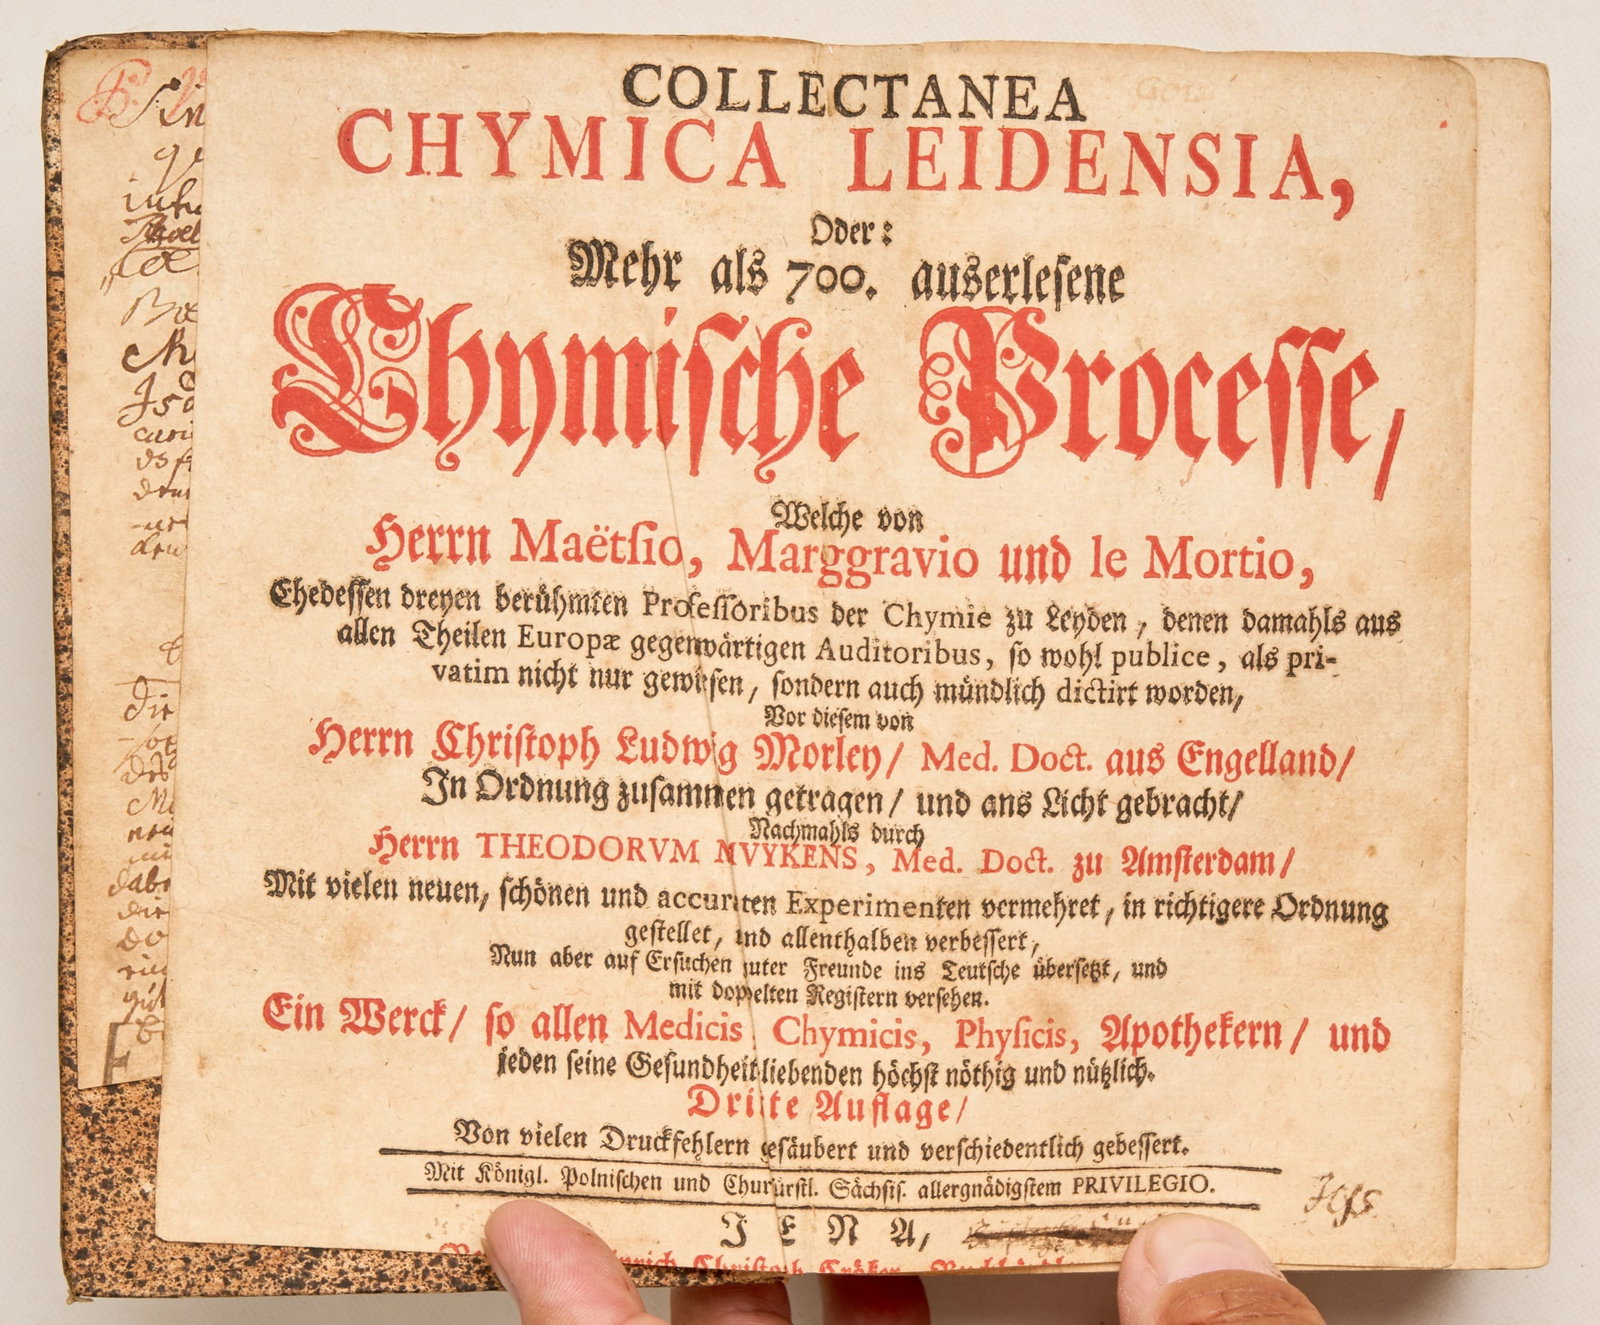 COLLECTANEA
CHYMICA LEIDENSIA,
Oder:
Mehr als 700. auserlesene
Chymische Processe,
Welche von
Herrn Maëtsio, Marggravio und le Mortio,
Ehedessen dreyen berühmten Professoribus der Chymie zu Leyden, denen damahls aus
allen Theilen Europæ gegenwärtigen Auditoribus, so wohl publice, als pri-
vatim nicht nur gewiesen, sondern auch mündlich dictirt worden,
Vor diesem von
Herrn Christoph Ludwig Morley/ Med. Doct. aus Engelland/
In Ordnung zusammen getragen/ und ans Licht gebracht/
Nachmahls durch
Herrn THEODORVM MVYKENS, Med. Doct. zu Amsterdam/
Mit vielen neuen, schönen und accuraten Experimenten vermehret, in richtigere Ordnung
gestellet, und allenthalben verbessert,
Nun aber auf Ersuchen guter Freunde ins Teutsche übersetzt, und
mit doppelten Registern versehen.
Ein Werck/ so allen Medicis, Chymicis, Physicis, Apothekern/ und
jeden seine Gesundheit liebenden höchst nöthig und nützlich.
Dritte Auflage/
Von vielen Druckfehlern gesäubert und verschiedentlich gebessert.
Mit Königl. Polnischen und Churfürstl. Sächsis. allergnädigstem PRIVILEGIO.
JENA,
Christoph Cröker,